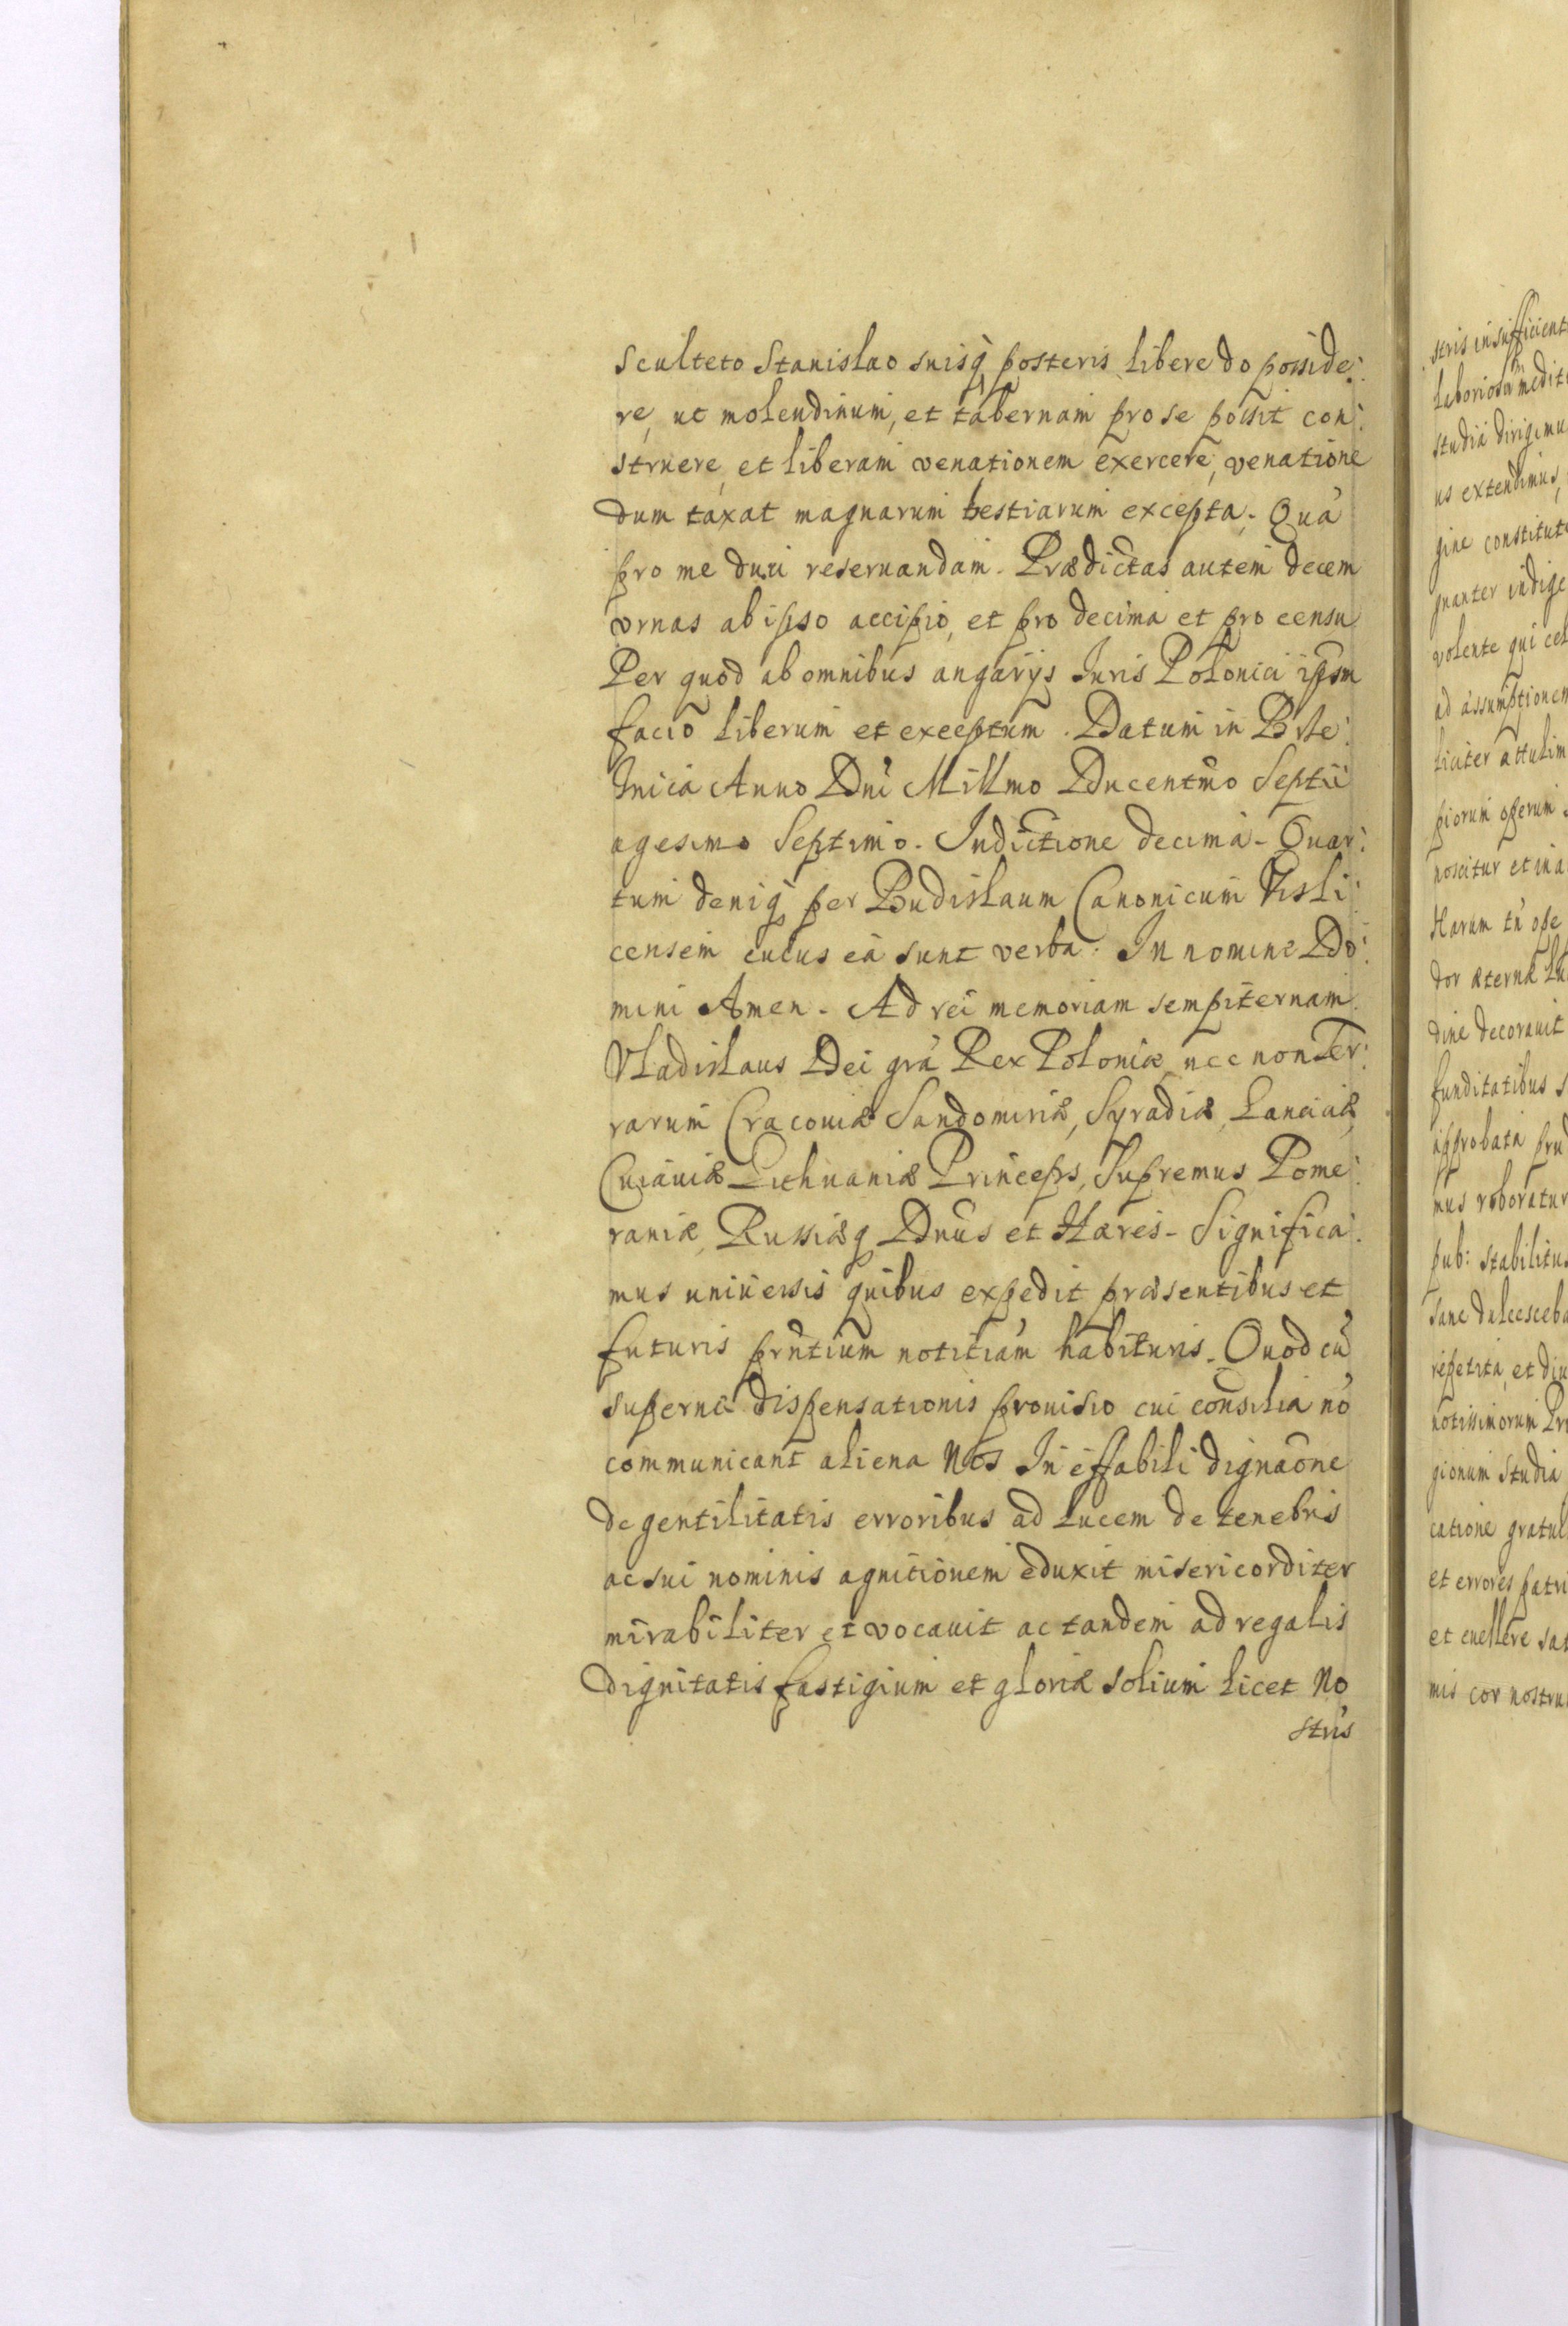 Sculteto Stanislao suisq posteris libere do posside:
re, ut molendinum, et tabernam pro se possit con:
struere, et liberam venationem exercere, venatione
dum taxat magnarum bestiarum excepta. Quã
pro me duxi reseruandam. Prædictas autem decem
vrnas ab ipso accipio, et pro decima et pro censu
Per quod ab omnibus angarijs Iuris Polonici ipsm
facio liberum et exceptum. Datum in
Anno Dni Millmo Ducentmo Septu
agesimo Septimo. Indictione decima. Quar:
tum deniq per Budislaum Canonicum Visli:
censem cuius ea sunt verba: In nomine Do:
mini Amen. Ad rei memoriam sempiternam
Vladislaus Dei grã Rex Poloniæ, nec non Ter:
rarum Cracouiæ Sandomiriæ, Syradiæ, Lanciciæ,
Cuiauiæ Lithuaniæ Princeps, Supremus Pome:
raniæ, Russiæq Dnus et Hæres. Significa:
mus uniuersis quibus expedit præsentibus et
futuris prntium notitiam habituris. Quod cũ
superni dispensationis prouisio cui consilia nõ
communicant aliena Nos Ineffabili dignaõne
de gentilitatis erroribus ad lucem de tenebris
ac sui nominis agnitionem eduxit misericorditer
mirabiliter et vocauit ac tandem ad regalis
dignitatis fastigium et gloriæ solium licet No
stris
stris insufficient
studia dirigimu
us extendimus,
gine constitut
gnanter indige
volente qui cel
ad assumptionem
liciter attulim
piorum operum
noscitur et in a
Harum tñ ope
dor æternæ lu
dine decorauit
funditatibus s
approbata pru
mus roboratur
pub: stabilitus
sane dulcesceba
repetita, et diu
notissimorum Pri
gionum studia
catione gratul
et errores patri
et euellere sat
mis cor nostru